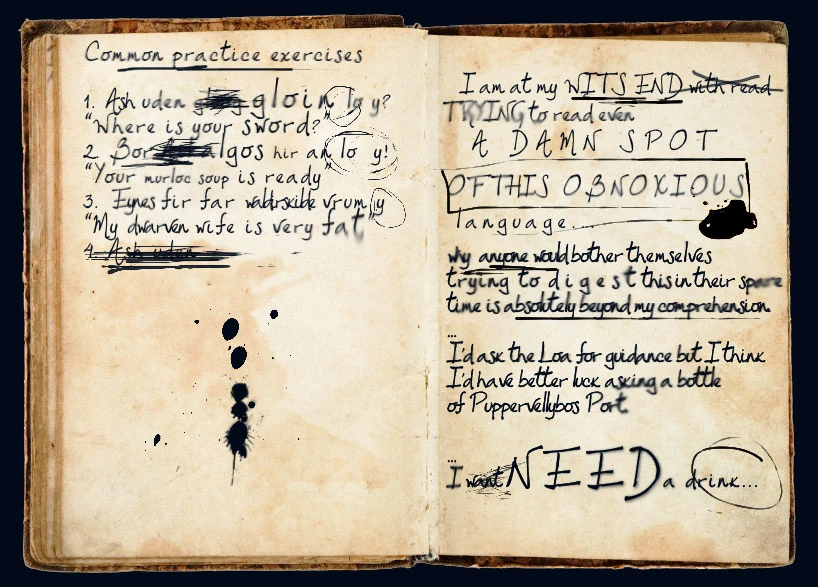 Common practice exercises
1. Ash uden gloin lo y?
"Where is your sword?"
2. algos hir an lo y!
"Your murloc soup is ready"
3. Eynes fir far vrum y
"My dwarven wife is very fat"
4. Ash uden
I am at my WITS END with read
TRYING to read even
A DAMN SPOT
OF THIS OBNOXIOUS
language...
why anyone would bother themselves
trying to digest this in their spare
time is absolutely beyond my comprehension.
...
I'd ask the Loa for guidance but I think
I'd have better luck asking a bottle
of Puppervellybos Port
...
I want NEED a drink...